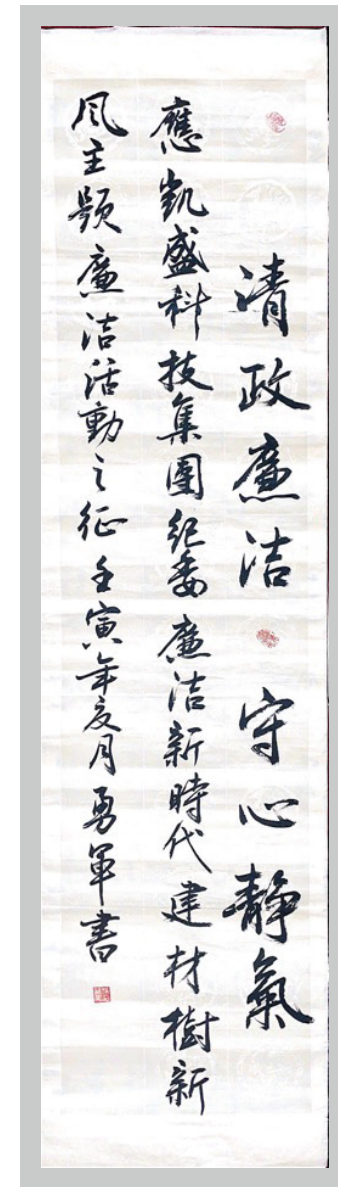 清政廉洁 守心静氣
應凱盛科技集團纪委廉洁新時代建材樹新
风主题廉洁活動之征 壬寅年夏月 勇军書